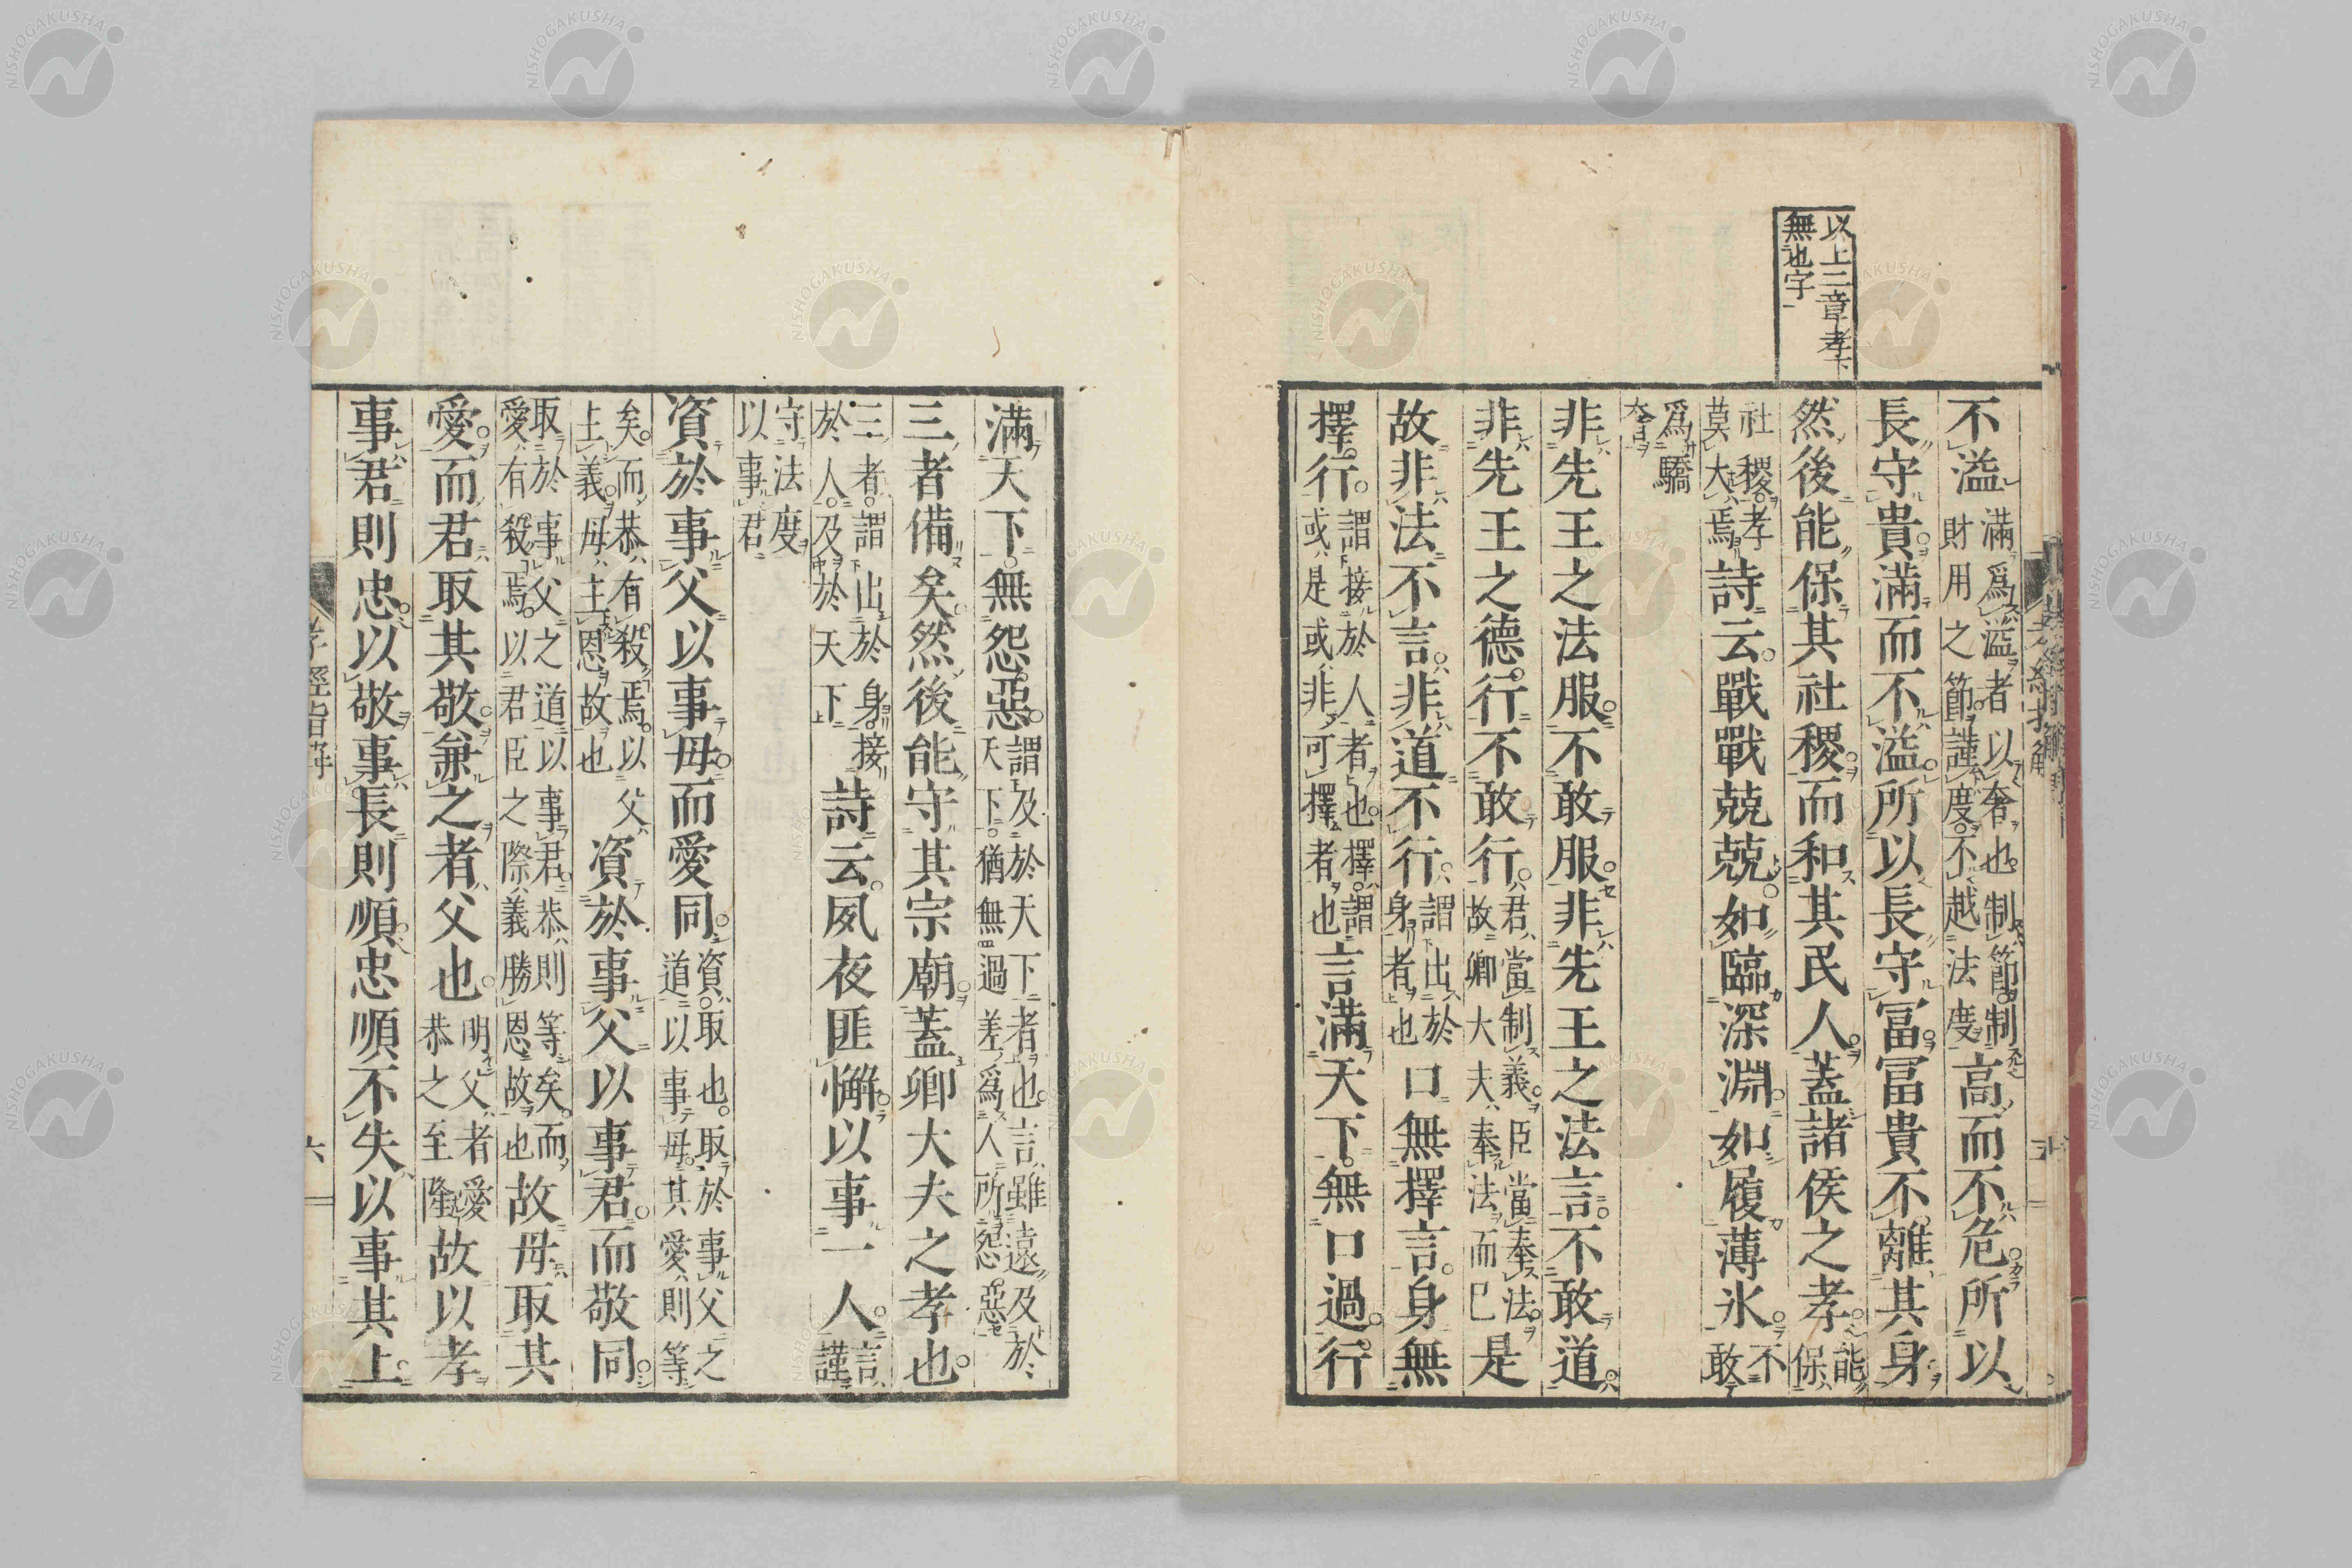 以上三章孝下
無也字
不溢滿爲溢者以奢也制節制
財用之節謹度不越法度高而不危所以
長守貴滿而不溢所以長守冨冨貴不離其身
然後能保其社稷而和其民人蓋諸侯之孝能
保
社稷孝
莫大焉詩云戰戰兢兢如臨深淵如履薄氷不
敢
爲驕
奢
非先王之法服不敢服非先王之法言不敢道
非先王之德行不敢行君當制義臣當奉法
故卿大夫奉法而已是
故非法不言非道不行謂出於
身者也口無擇言身無
擇行謂接於人者也擇謂
或是或非可擇者也言滿天下無口過行
滿天下無怨惡謂及於天下者也言雖遠及於
天下猶無過差爲人所怨惡
三者備矣然後能守其宗廟蓋卿大夫之孝也
三者謂出於身接
於人及於天下詩云夙夜匪懈以事一人言
謹
守法度
以事君
資於事父以事母而愛同資取也取於事父之
道以事母其愛則等
矣而恭有殺焉以父
主義母主恩故也資於事父以事君而敬同
取於事父之道以事君恭則等矣而
愛有殺焉以君臣之際義勝恩故也故母取其
愛而君取其敬兼之者父也明父者愛
恭之至隆故以孝
事君則忠以敬事長則順忠順不失以事其上
孝經指解
六
NISHOGAKUSHA